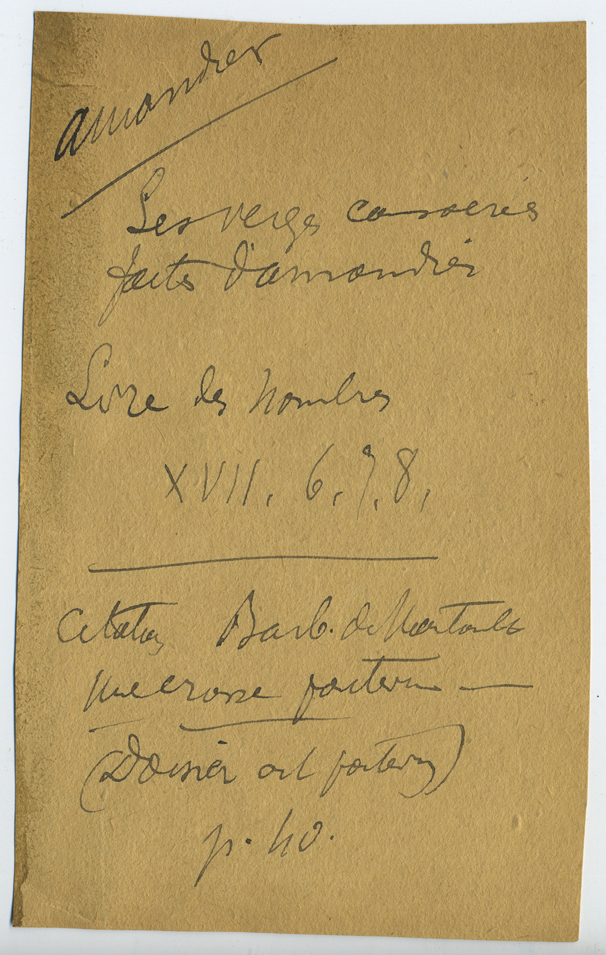 amandier
Les verges consacrées
faites d'amandier
Livre des Nombres
XVII. 6. 7. 8.
Citation Barb. de Montault
une crosse
(Dossier art
p. 40.